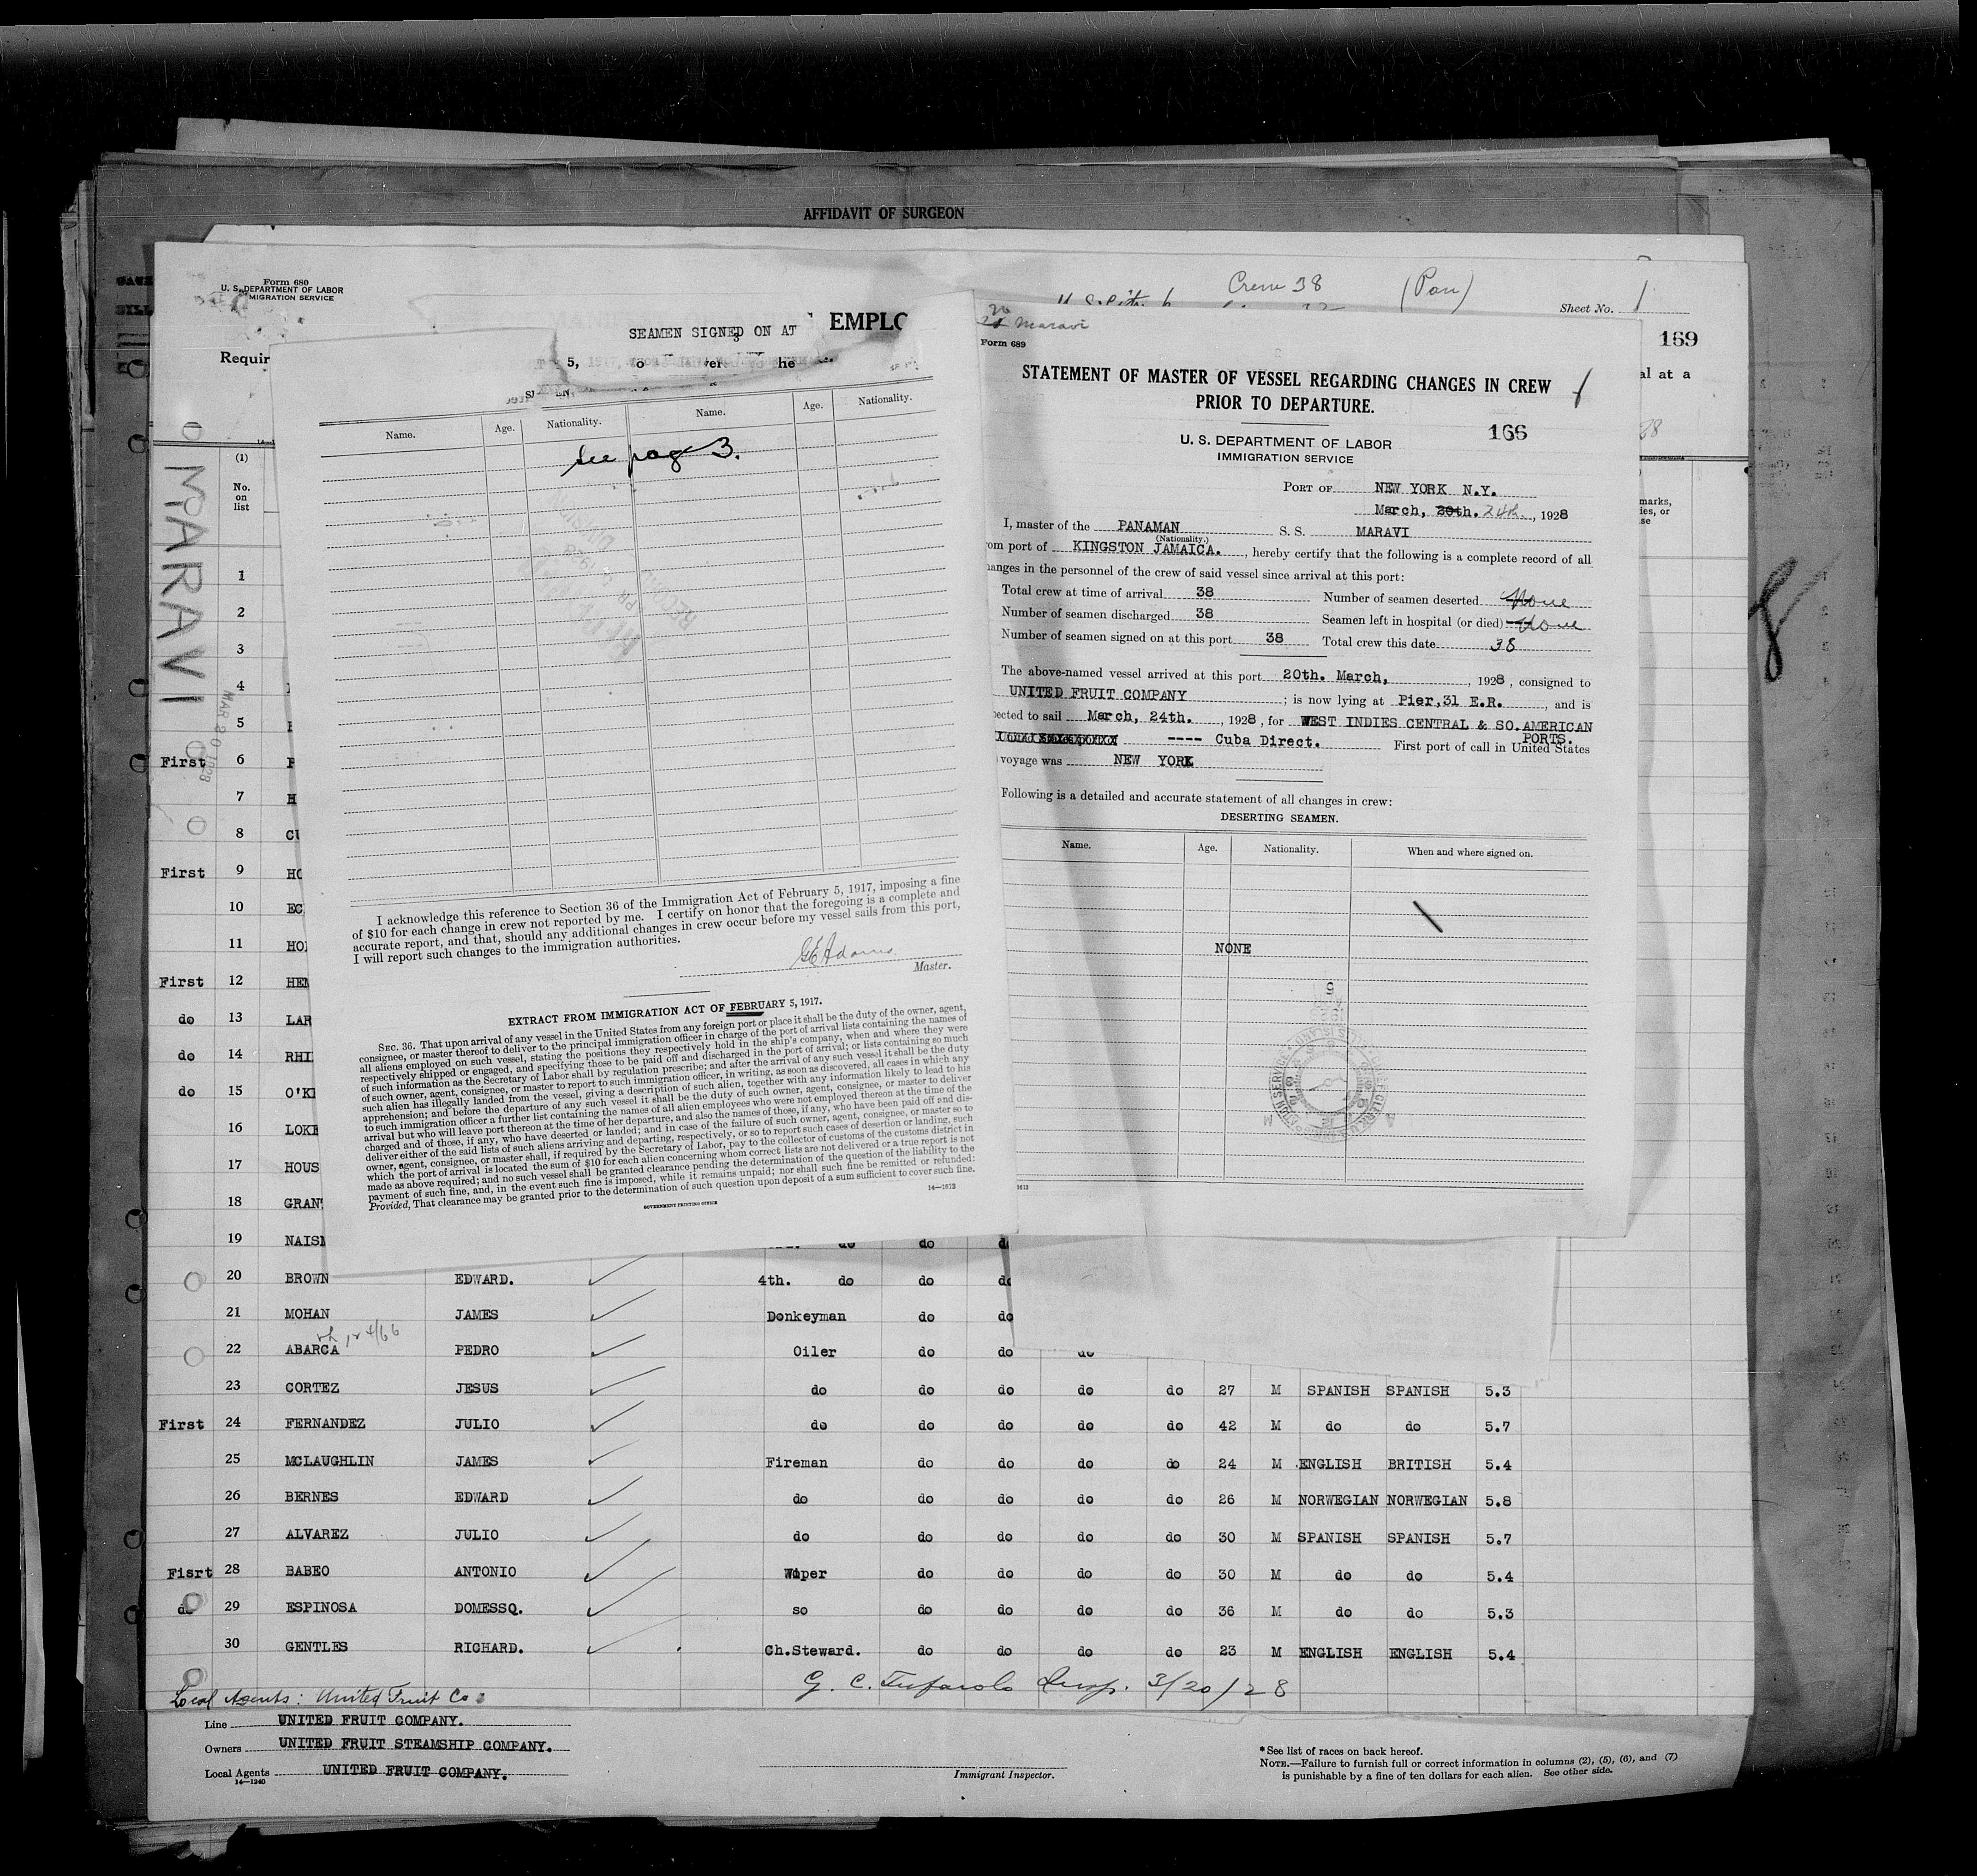 AFFIDAVIT OF SURGEON
Form 680
U. S. DEPARTMENT OF LABOR
MIGRATION SERVICE
Crew 38 (Pan)
Sheet No. 1
169
EMPLO
Requir
al at a
MARAVI
MAR 20 1928
(1)
No.
on
list
marks,
ies, or
se
SEAMEN SIGNED ON AT
5,
Name. Age. Nationality. Name. Age. Nationality.
See page 3.
I acknowledge this reference to Section 36 of the Immigration Act of February 5, 1917, imposing a fine
of $10 for each change in crew not reported by me. I certify on honor that the foregoing is a complete and
accurate report, and that, should any additional changes in crew occur before my vessel sails from this port,
I will report such changes to the immigration authorities.
G E Adams
Master.
EXTRACT FROM IMMIGRATION ACT OF FEBRUARY 5, 1917.
SEC. 36. That upon arrival of any vessel in the United States from any foreign port or place it shall be the duty of the owner, agent,
consignee, or master thereof to deliver to the principal immigration officer in charge of the port of arrival lists containing the names of
all aliens employed on such vessel, stating the positions they respectively hold in the ship's company, when and where they were
respectively shipped or engaged, and specifying those to be paid off and discharged in the port of arrival; or lists containing so much
of such information as the Secretary of Labor shall by regulation prescribe; and after the arrival of any such vessel it shall be the duty
of such owner, agent, consignee, or master to report to such immigration officer, in writing, as soon as discovered, all cases in which any
such alien has illegally landed from the vessel, giving a description of such alien, together with any information likely to lead to his
apprehension; and before the departure of any such vessel it shall be the duty of such owner, agent, consignee, or master to deliver
to such immigration officer a further list containing the names of all alien employees who were not employed thereon at the time of the
arrival but who will leave port thereon at the time of her departure, and also the names of those, if any, who have been paid off and dis-
charged and of those, if any, who have deserted or landed; and in case of the failure of such owner, agent, consignee, or master so to
deliver either of the said lists of such aliens arriving and departing, respectively, or so to report such cases of desertion or landing, such
owner, agent, consignee, or master shall, if required by the Secretary of Labor, pay to the collector of customs of the customs district in
which the port of arrival is located the sum of $10 for each alien concerning whom correct lists are not delivered or a true report is not
made as above required; and no such vessel shall be granted clearance pending the determination of the question of the liability to the
payment of such fine, and, in the event such fine is imposed, while it remains unpaid; nor shall such fine be remitted or refunded:
Provided, That clearance may be granted prior to the determination of such question upon deposit of a sum sufficient to cover such fine.
GOVERNMENT PRINTING OFFICE
Maravi
Form 689
STATEMENT OF MASTER OF VESSEL REGARDING CHANGES IN CREW
PRIOR TO DEPARTURE.
166
U. S. DEPARTMENT OF LABOR
IMMIGRATION SERVICE
PORT OF NEW YORK N.Y.
March, 20th. 24th, 1928
I, master of the PANAMAN S. S. MARAVI
(Nationality.)
om port of KINGSTON JAMAICA. , hereby certify that the following is a complete record of all
anges in the personnel of the crew of said vessel since arrival at this port:
Total crew at time of arrival 38 Number of seamen deserted None
Number of seamen discharged 38 Seamen left in hospital (or died) None
Number of seamen signed on at this port 38 Total crew this date 38
The above-named vessel arrived at this port 20th. March, , 1928, consigned to
UNITED FRUIT COMPANY ; is now lying at Pier,31 E.R. , and is
ected to sail March, 24th. , 1928, for WEST INDIES CENTRAL & SO. AMERICAN
PORTS.
---- Cuba Direct. First port of call in United States
voyage was NEW YORK
Following is a detailed and accurate statement of all changes in crew:
DESERTING SEAMEN.
Name. Age. Nationality. When and where signed on.
NONE
1
2
3
4
5
First 6
7 H
8 CU
First 9 HO
10 EC
11 HO
First 12 HEN
do 13 LAR
do 14 RHI
do 15 O'K
16 LOKE
17 HOUS
18 GRANT
19 NAIS do
20 BROWN EDWARD. 4th. do do do
21 MOHAN JAMES Donkeyman do do
22 ABARCA PEDRO Oiler do do do
23 CORTEZ JESUS do do do do do 27 M SPANISH SPANISH 5.3
First 24 FERNANDEZ JULIO do do do do do 42 M do do 5.7
25 MCLAUGHLIN JAMES Fireman do do do do 24 M ENGLISH BRITISH 5.4
26 BERNES EDWARD do do do do do 26 M NORWEGIAN NORWEGIAN 5.8
27 ALVAREZ JULIO do do do do do 30 M SPANISH SPANISH 5.7
Fisrt 28 BABEO ANTONIO Wiper do do do do 30 M do do 5.4
do 29 ESPINOSA DOMESSQ. so do do do do 36 M do do 5.3
30 GENTLES RICHARD. Ch.Steward. do do do do 23 M ENGLISH ENGLISH 5.4
Local Agents: United Fruit Co.
G. C. Tufarolo Insp. 3/20/28
Line UNITED FRUIT COMPANY.
Owners UNITED FRUIT STEAMSHIP COMPANY.
Local Agents UNITED FRUIT COMPANY.
14—1240
Immigrant Inspector.
* See list of races on back hereof.
NOTE.—Failure to furnish full or correct information in columns (2), (5), (6), and (7)
is punishable by a fine of ten dollars for each alien. See other side.